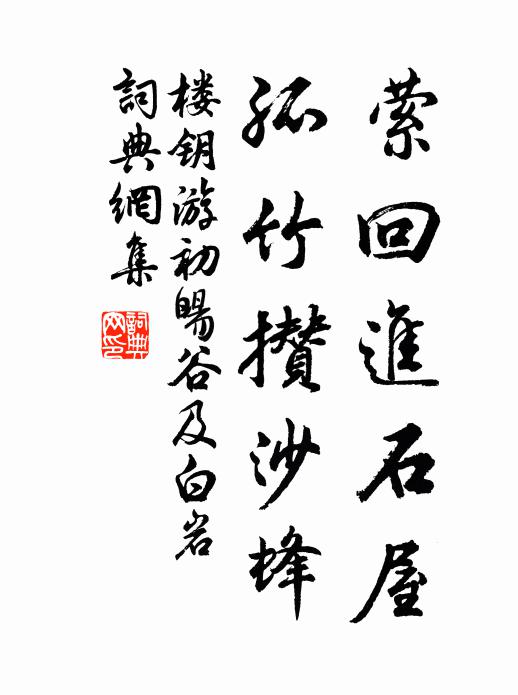 萦回進石屋
孤竹攢沙蜂
楼钥游初暘谷及白岩
詞典網集
詞典
网印